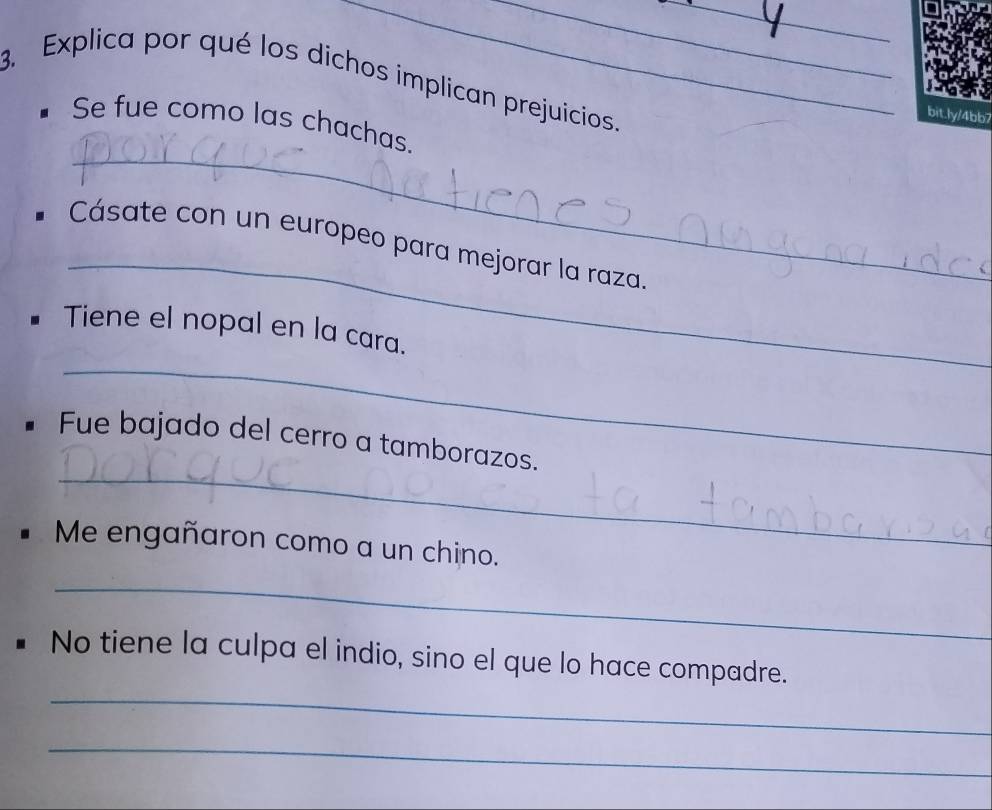 y
bit.ly/4bb7
3. Explica por qué los dichos implican prejuicios.
▪ Se fue como las chachas.
porque tienes
▪ Cásate con un europeo para mejorar la raza.
▪ Tiene el nopal en la cara.
▪ Fue bajado del cerro a tamborazos.
porque no es ta
▪ Me engañaron como a un chino.
▪ No tiene la culpa el indio, sino el que lo hace compadre.